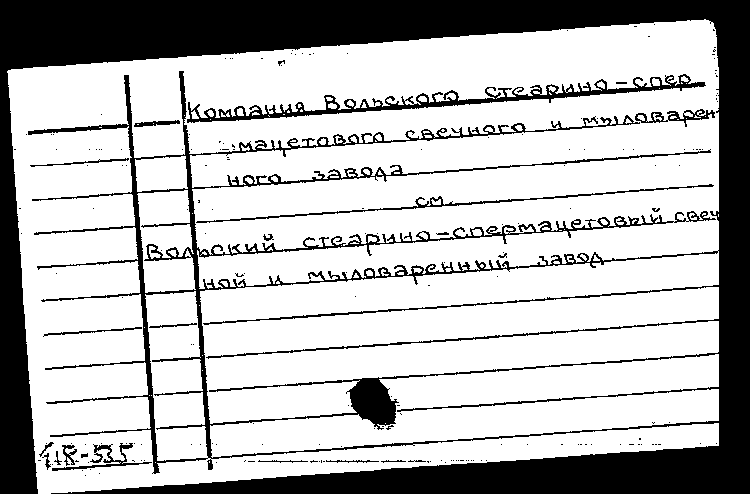 Компания Вольского стеарино-спер
мацетового свечного и мыловарен
ного завода
см.
Вольский стеарино-спермацетовый свеч
ной и мыловаренный завод.